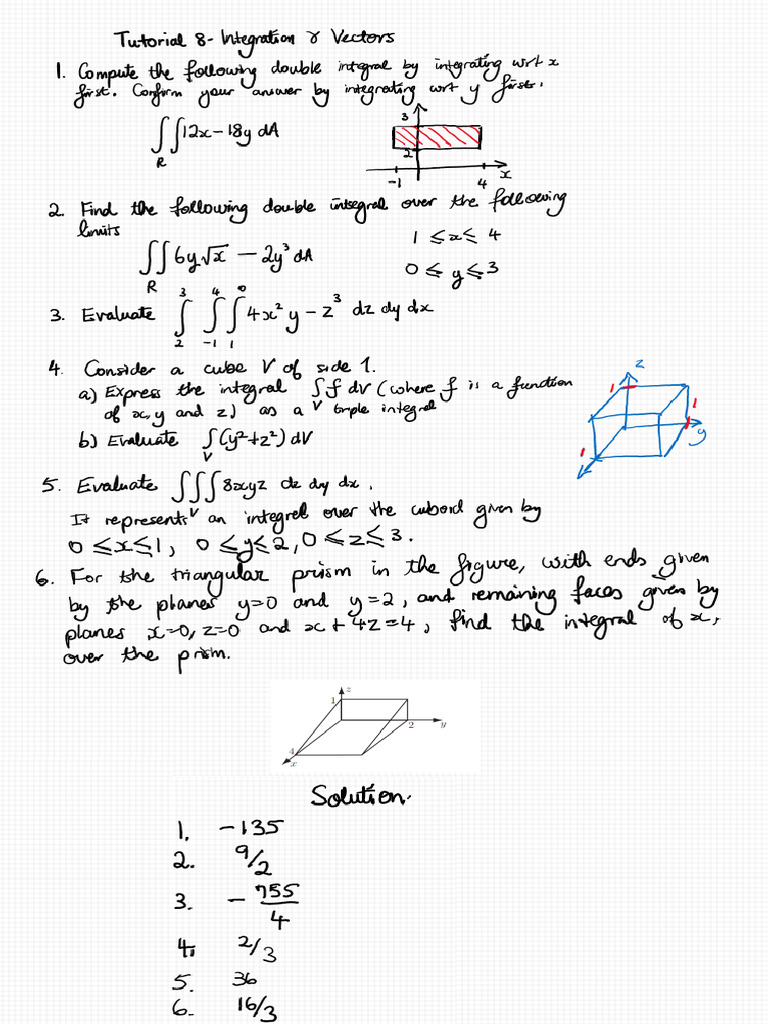 Tutorial 8 - Integration & Vectors
1. Compute the following double integral by integrating wrt x
first. Confirm your answer by integrating wrt y first.
∬_R 12x - 18y dA
3
2
-1 4 x
2. Find the following double integral over the following
limits
1 ≤ x ≤ 4
∬_R 6y√x - 2y³ dA
0 ≤ y ≤ 3
3. Evaluate ∫_2^3 ∫_{-1}^4 ∫_1^0 4x²y - z³ dz dy dx
4. Consider a cube V of side 1.
a) Express the integral ∫_V f dV (where f is a function
of x, y and z) as a triple integral
b) Evaluate ∫_V (y²+z²) dV
z
1
1
y
1
5. Evaluate ∭_V 8xyz dz dy dx.
It represents an integral over the cuboid given by
0 ≤ x ≤ 1, 0 ≤ y ≤ 2, 0 ≤ z ≤ 3.
6. For the triangular prism in the figure, with ends given
by the planes y=0 and y=2, and remaining faces given by
planes x=0, z=0 and x + 4z = 4, find the integral of x,
over the prism.
z
1
2 y
4
x
Solution.
1. -135
2. 9/2
3. - 755/4
4. 2/3
5. 36
6. 16/3